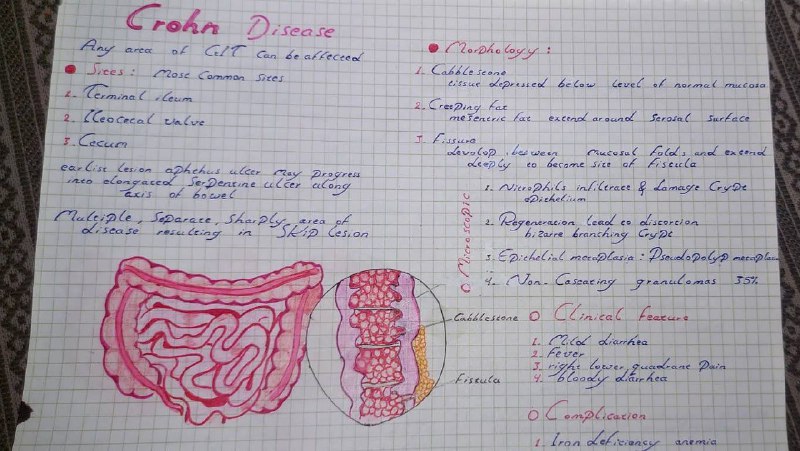 Crohn Disease
Any area of GIT can be affected
Sites: Most Common sites
1. Terminal ileum
2. Ileocecal valve
3. Cecum
earlist lesion aphthus ulcer may progress
into elongated, serpentine ulcer along
axis of bowel
Multiple, Separate, Sharply, area of
disease resulting in Skip Lesion
Cabblestone
Fistula
Morphology:
1. Cabblestone
tissue depressed below level of normal mucosa
2. Creeping fat
mesentric fat extend around serosal surface
3. Fissure
devolop between mucosal folds and extend
deeply to become site of fistula
Microscopic
1. Nitrophils infiltrate & damage Crypt
epithelium
2. Regeneration lead to distortion
bizarre branching Crypt
3. Epithelial metaplasia: Pseudopolyp metaplasia
4. Non-Caseating granulomas 35%
Clinical feature
1. Mild diarrhea
2. Fever
3. right lower quadrant Pain
4. bloody diarrhea
Complication
1. Iron deficiency anemia